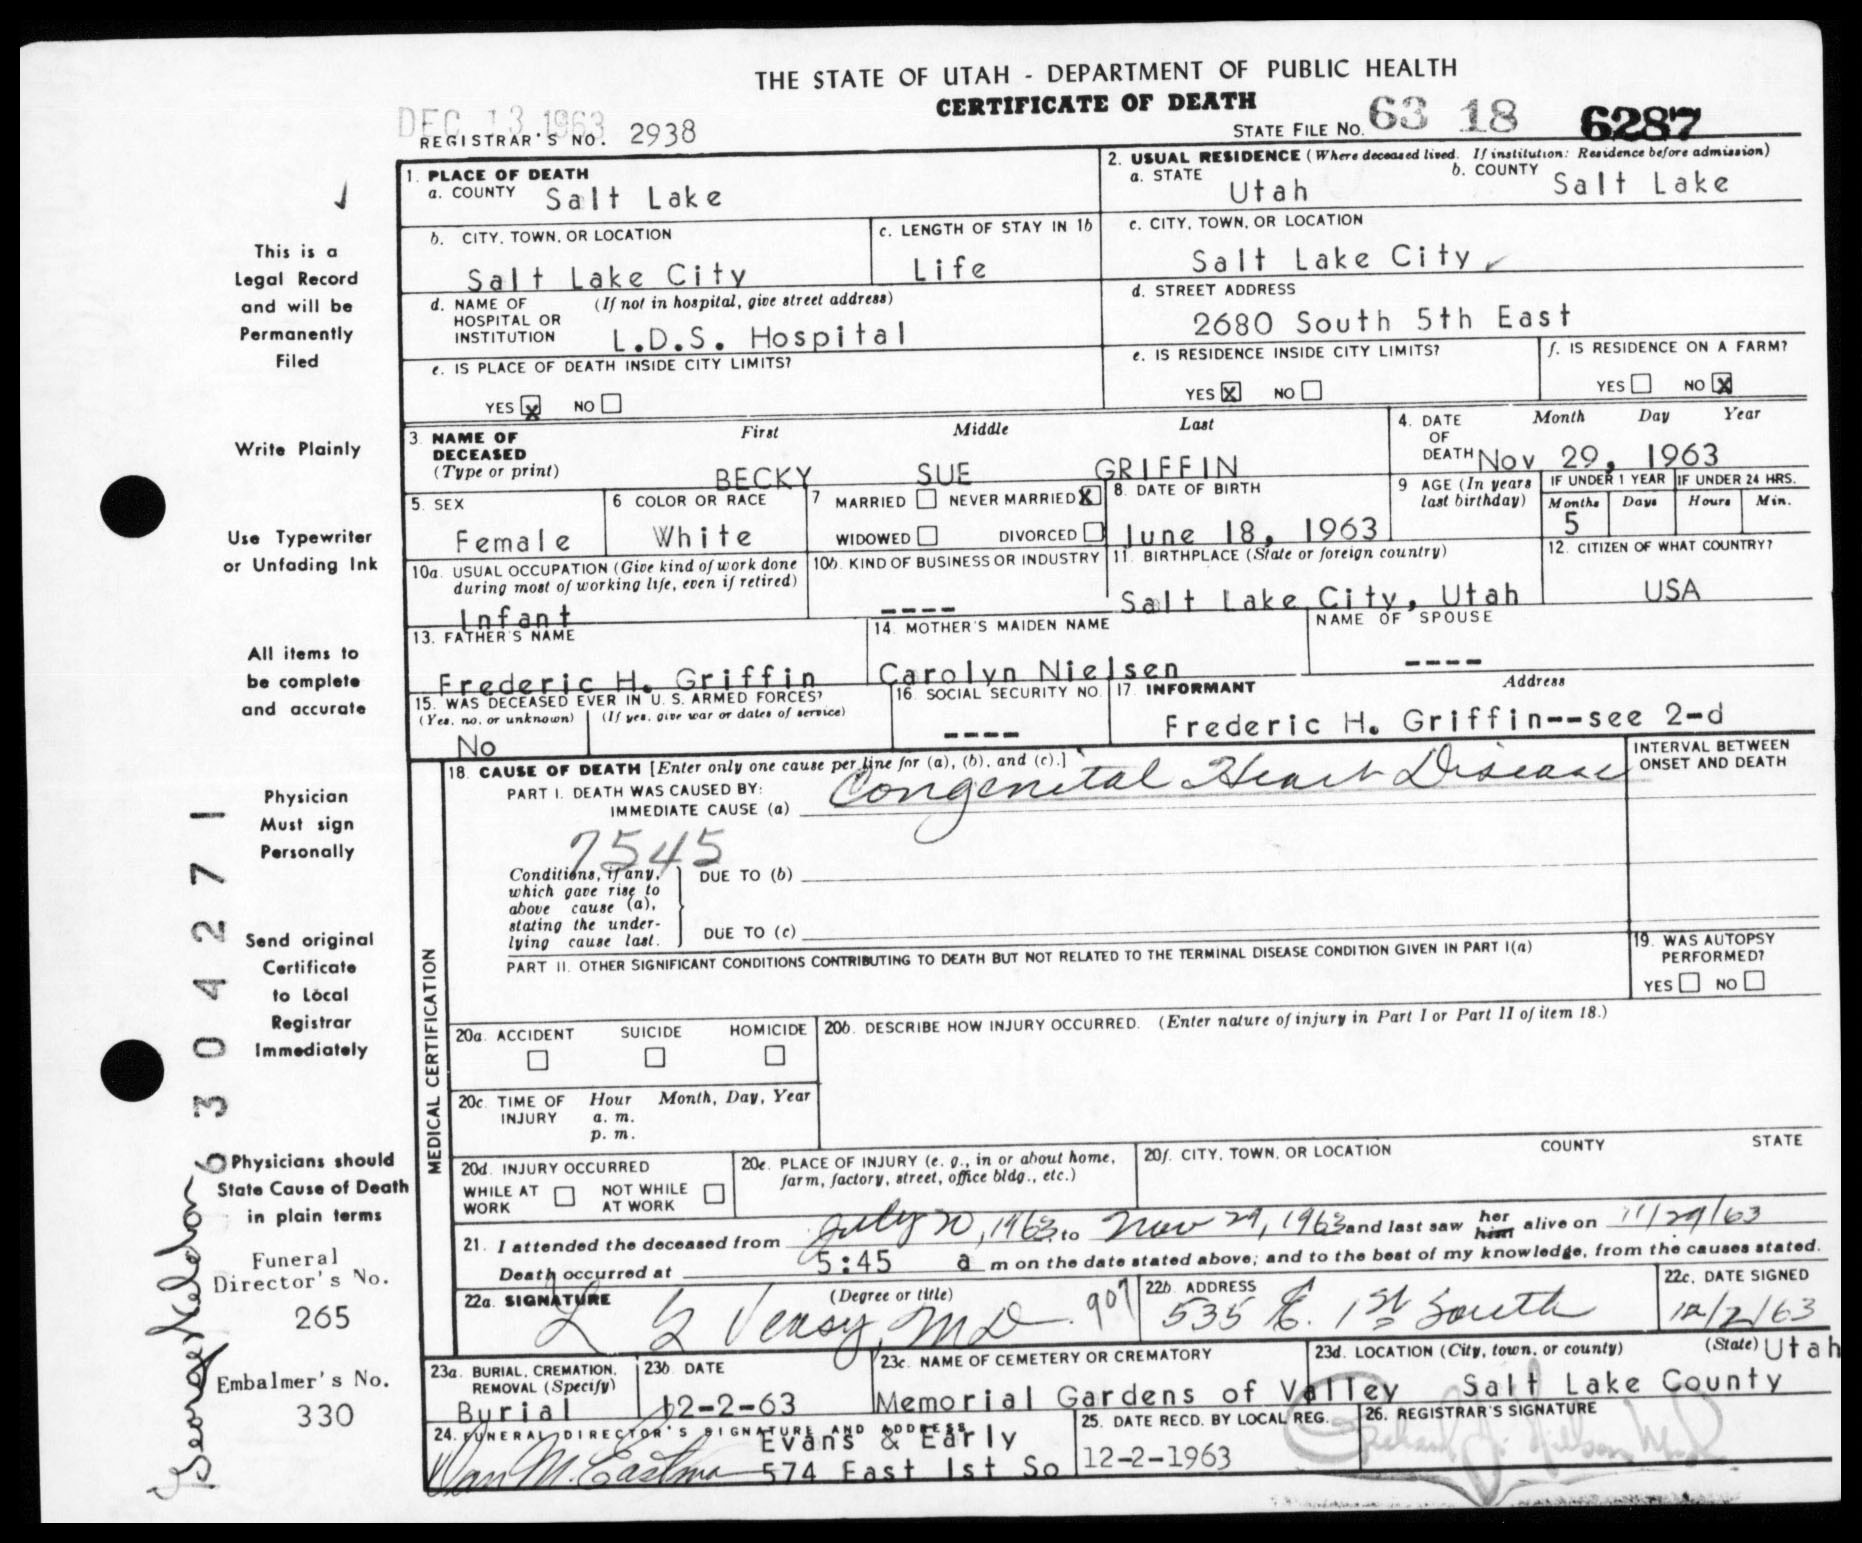 THE STATE OF UTAH - DEPARTMENT OF PUBLIC HEALTH
CERTIFICATE OF DEATH
DEC 13 1963
REGISTRAR'S NO. 2938
STATE FILE NO. 63 18 6287
1. PLACE OF DEATH
a. COUNTY Salt Lake
2. USUAL RESIDENCE (Where deceased lived. If institution: Residence before admission)
a. STATE Utah
b. COUNTY Salt Lake
b. CITY, TOWN, OR LOCATION
Salt Lake City
c. LENGTH OF STAY IN 1b
Life
c. CITY, TOWN, OR LOCATION
Salt Lake City
d. NAME OF HOSPITAL OR INSTITUTION (If not in hospital, give street address)
L.D.S. Hospital
d. STREET ADDRESS
2680 South 5th East
e. IS PLACE OF DEATH INSIDE CITY LIMITS?
YES X NO
e. IS RESIDENCE INSIDE CITY LIMITS?
YES X NO
f. IS RESIDENCE ON A FARM?
YES NO X
3. NAME OF DECEASED (Type or print)
First Middle Last
BECKY SUE GRIFFIN
4. DATE OF DEATH
Month Day Year
Nov 29, 1963
5. SEX
Female
6 COLOR OR RACE
White
7 MARRIED NEVER MARRIED X
WIDOWED DIVORCED
8. DATE OF BIRTH
June 18, 1963
9 AGE (In years last birthday)
IF UNDER 1 YEAR
Months Days
5
IF UNDER 24 HRS.
Hours Min.
10a. USUAL OCCUPATION (Give kind of work done during most of working life, even if retired)
Infant
10b. KIND OF BUSINESS OR INDUSTRY
----
11. BIRTHPLACE (State or foreign country)
Salt Lake City, Utah
12. CITIZEN OF WHAT COUNTRY?
USA
13. FATHER'S NAME
Frederic H. Griffin
14. MOTHER'S MAIDEN NAME
Carolyn Nielsen
NAME OF SPOUSE
----
15. WAS DECEASED EVER IN U. S. ARMED FORCES?
(Yes, no, or unknown) (If yes, give war or dates of service)
No
16. SOCIAL SECURITY NO.
----
17. INFORMANT Address
Frederic H. Griffin--see 2-d
MEDICAL CERTIFICATION
18. CAUSE OF DEATH [Enter only one cause per line for (a), (b), and (c).]
PART I. DEATH WAS CAUSED BY:
IMMEDIATE CAUSE (a) Congenital Heart Disease
INTERVAL BETWEEN ONSET AND DEATH
7545
Conditions, if any, which gave rise to above cause (a), stating the underlying cause last.
DUE TO (b)
DUE TO (c)
PART II. OTHER SIGNIFICANT CONDITIONS CONTRIBUTING TO DEATH BUT NOT RELATED TO THE TERMINAL DISEASE CONDITION GIVEN IN PART I(a)
19. WAS AUTOPSY PERFORMED?
YES NO
20a. ACCIDENT SUICIDE HOMICIDE
20b. DESCRIBE HOW INJURY OCCURRED. (Enter nature of injury in Part I or Part II of item 18.)
20c. TIME OF INJURY
Hour Month, Day, Year
a. m.
p. m.
20d. INJURY OCCURRED
WHILE AT WORK NOT WHILE AT WORK
20e. PLACE OF INJURY (e. g., in or about home, farm, factory, street, office bldg., etc.)
20f. CITY, TOWN, OR LOCATION COUNTY STATE
21. I attended the deceased from July 20, 1963, to Nov 29, 1963 and last saw her him alive on 11/29/63
Death occurred at 5:45 a m on the date stated above; and to the best of my knowledge, from the causes stated.
22a. SIGNATURE (Degree or title)
L G Veasy, MD. 907
22b. ADDRESS
535 E. 1st South
22c. DATE SIGNED
12/2/63
23a. BURIAL, CREMATION, REMOVAL (Specify)
Burial
23b. DATE
12-2-63
23c. NAME OF CEMETERY OR CREMATORY
Memorial Gardens of Valley
23d. LOCATION (City, town, or county) (State)
Salt Lake County Utah
24. FUNERAL DIRECTOR'S SIGNATURE AND ADDRESS
Evans & Early
574 East 1st So
25. DATE RECD. BY LOCAL REG.
12-2-1963
26. REGISTRAR'S SIGNATURE
This is a
Legal Record
and will be
Permanently
Filed
Write Plainly
Use Typewriter
or Unfading Ink
All items to
be complete
and accurate
Physician
Must sign
Personally
Send original
Certificate
to Local
Registrar
Immediately
Physicians should
State Cause of Death
in plain terms
Funeral
Director's No.
265
Embalmer's No.
330
6304271